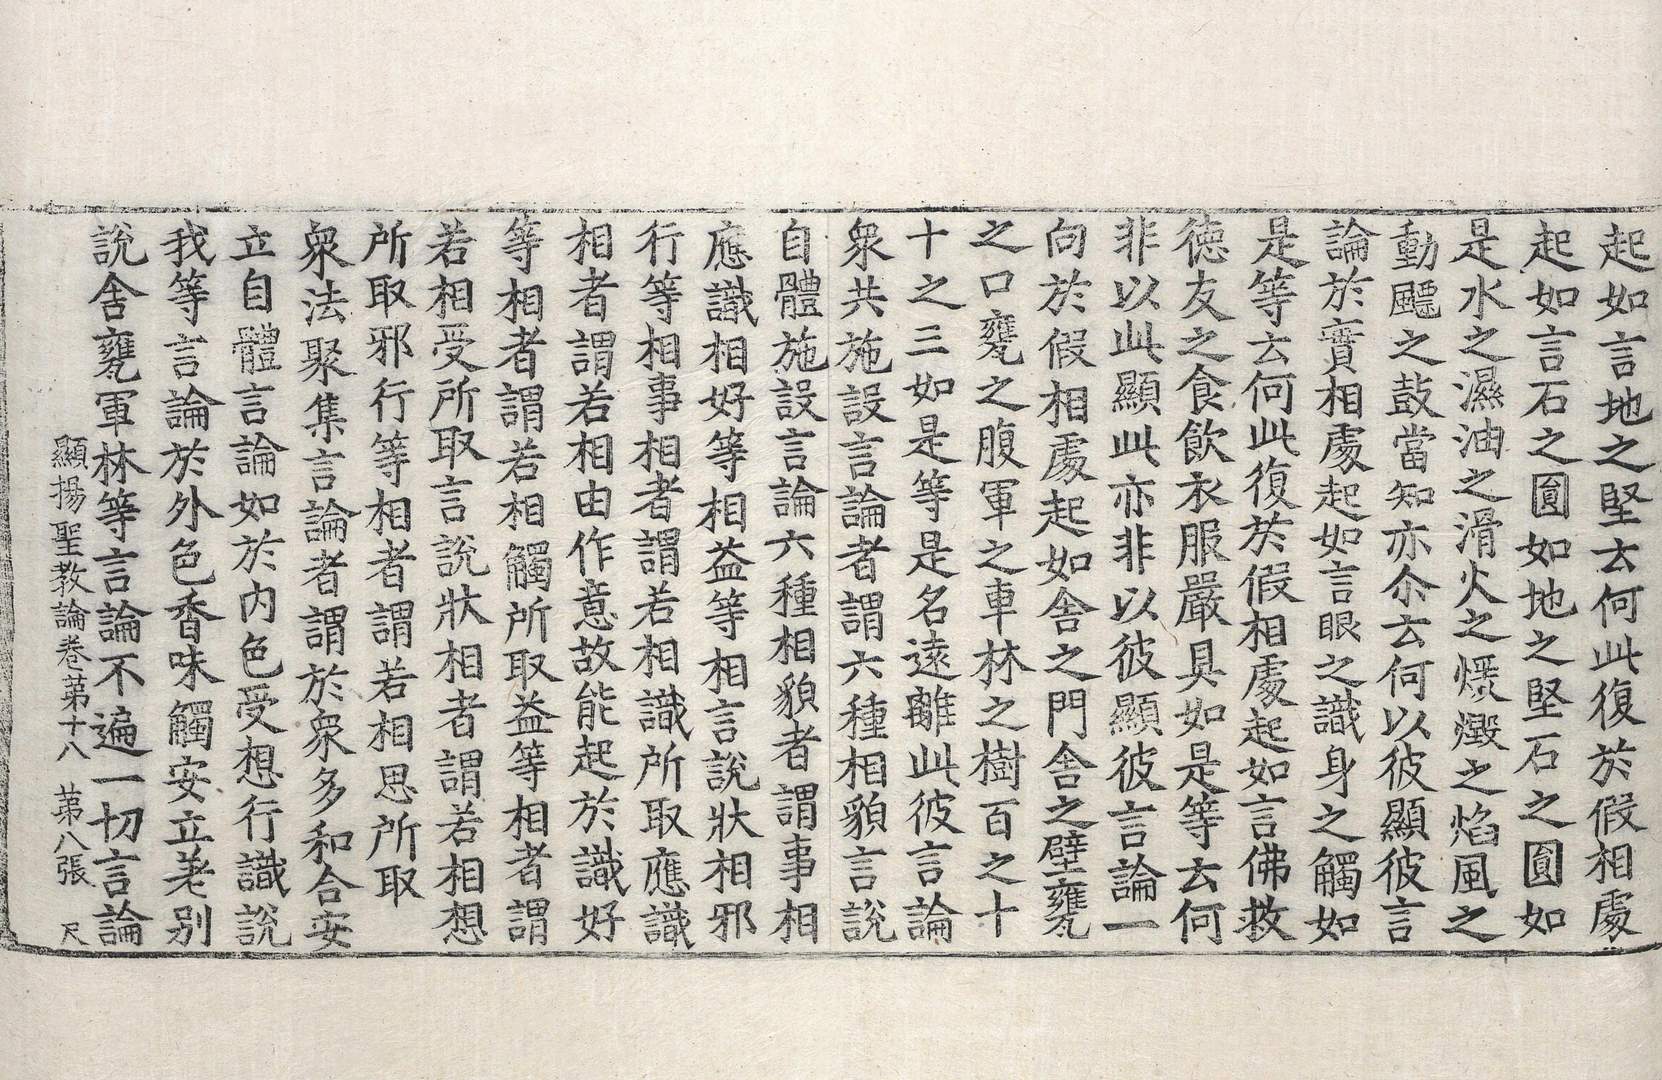 起如言地之堅去何此復於假相處
起如言石之圎如地之堅石之圎如
是水之濕油之滑火之煖燈之焰風之
動飈之鼓當知亦尒去何以彼顯彼言
論於實相處起如言眼之識身之觸如
是等去何此復於假相處起如言佛救
德友之食飲衣服嚴具如是等去何
非以此顯此亦非以彼顯彼言論一
向於假相處起如舍之門舍之壁甕
之口甕之腹軍之車林之樹百之十
十之三如是等是名遠離此彼言論
衆共施設言論者謂六種相貌言說
自體施設言論六種相貌者謂事相
應識相好等相益等相言說狀相邪
行等相事相者謂若相識所取應識
相者謂若相由作意故能起於識好
等相者謂若相觸所取益等相者謂
若相受所取言說狀相者謂若相想
所取邪行等相者謂若相思所取
衆法聚集言論者謂於衆多和合安
立自體言論如於內色受想行識說
我等言論於外色香味觸安立差別
說舍甕軍林等言論不遍一切言論
顯揚聖教論卷第十八 苐八張 尺